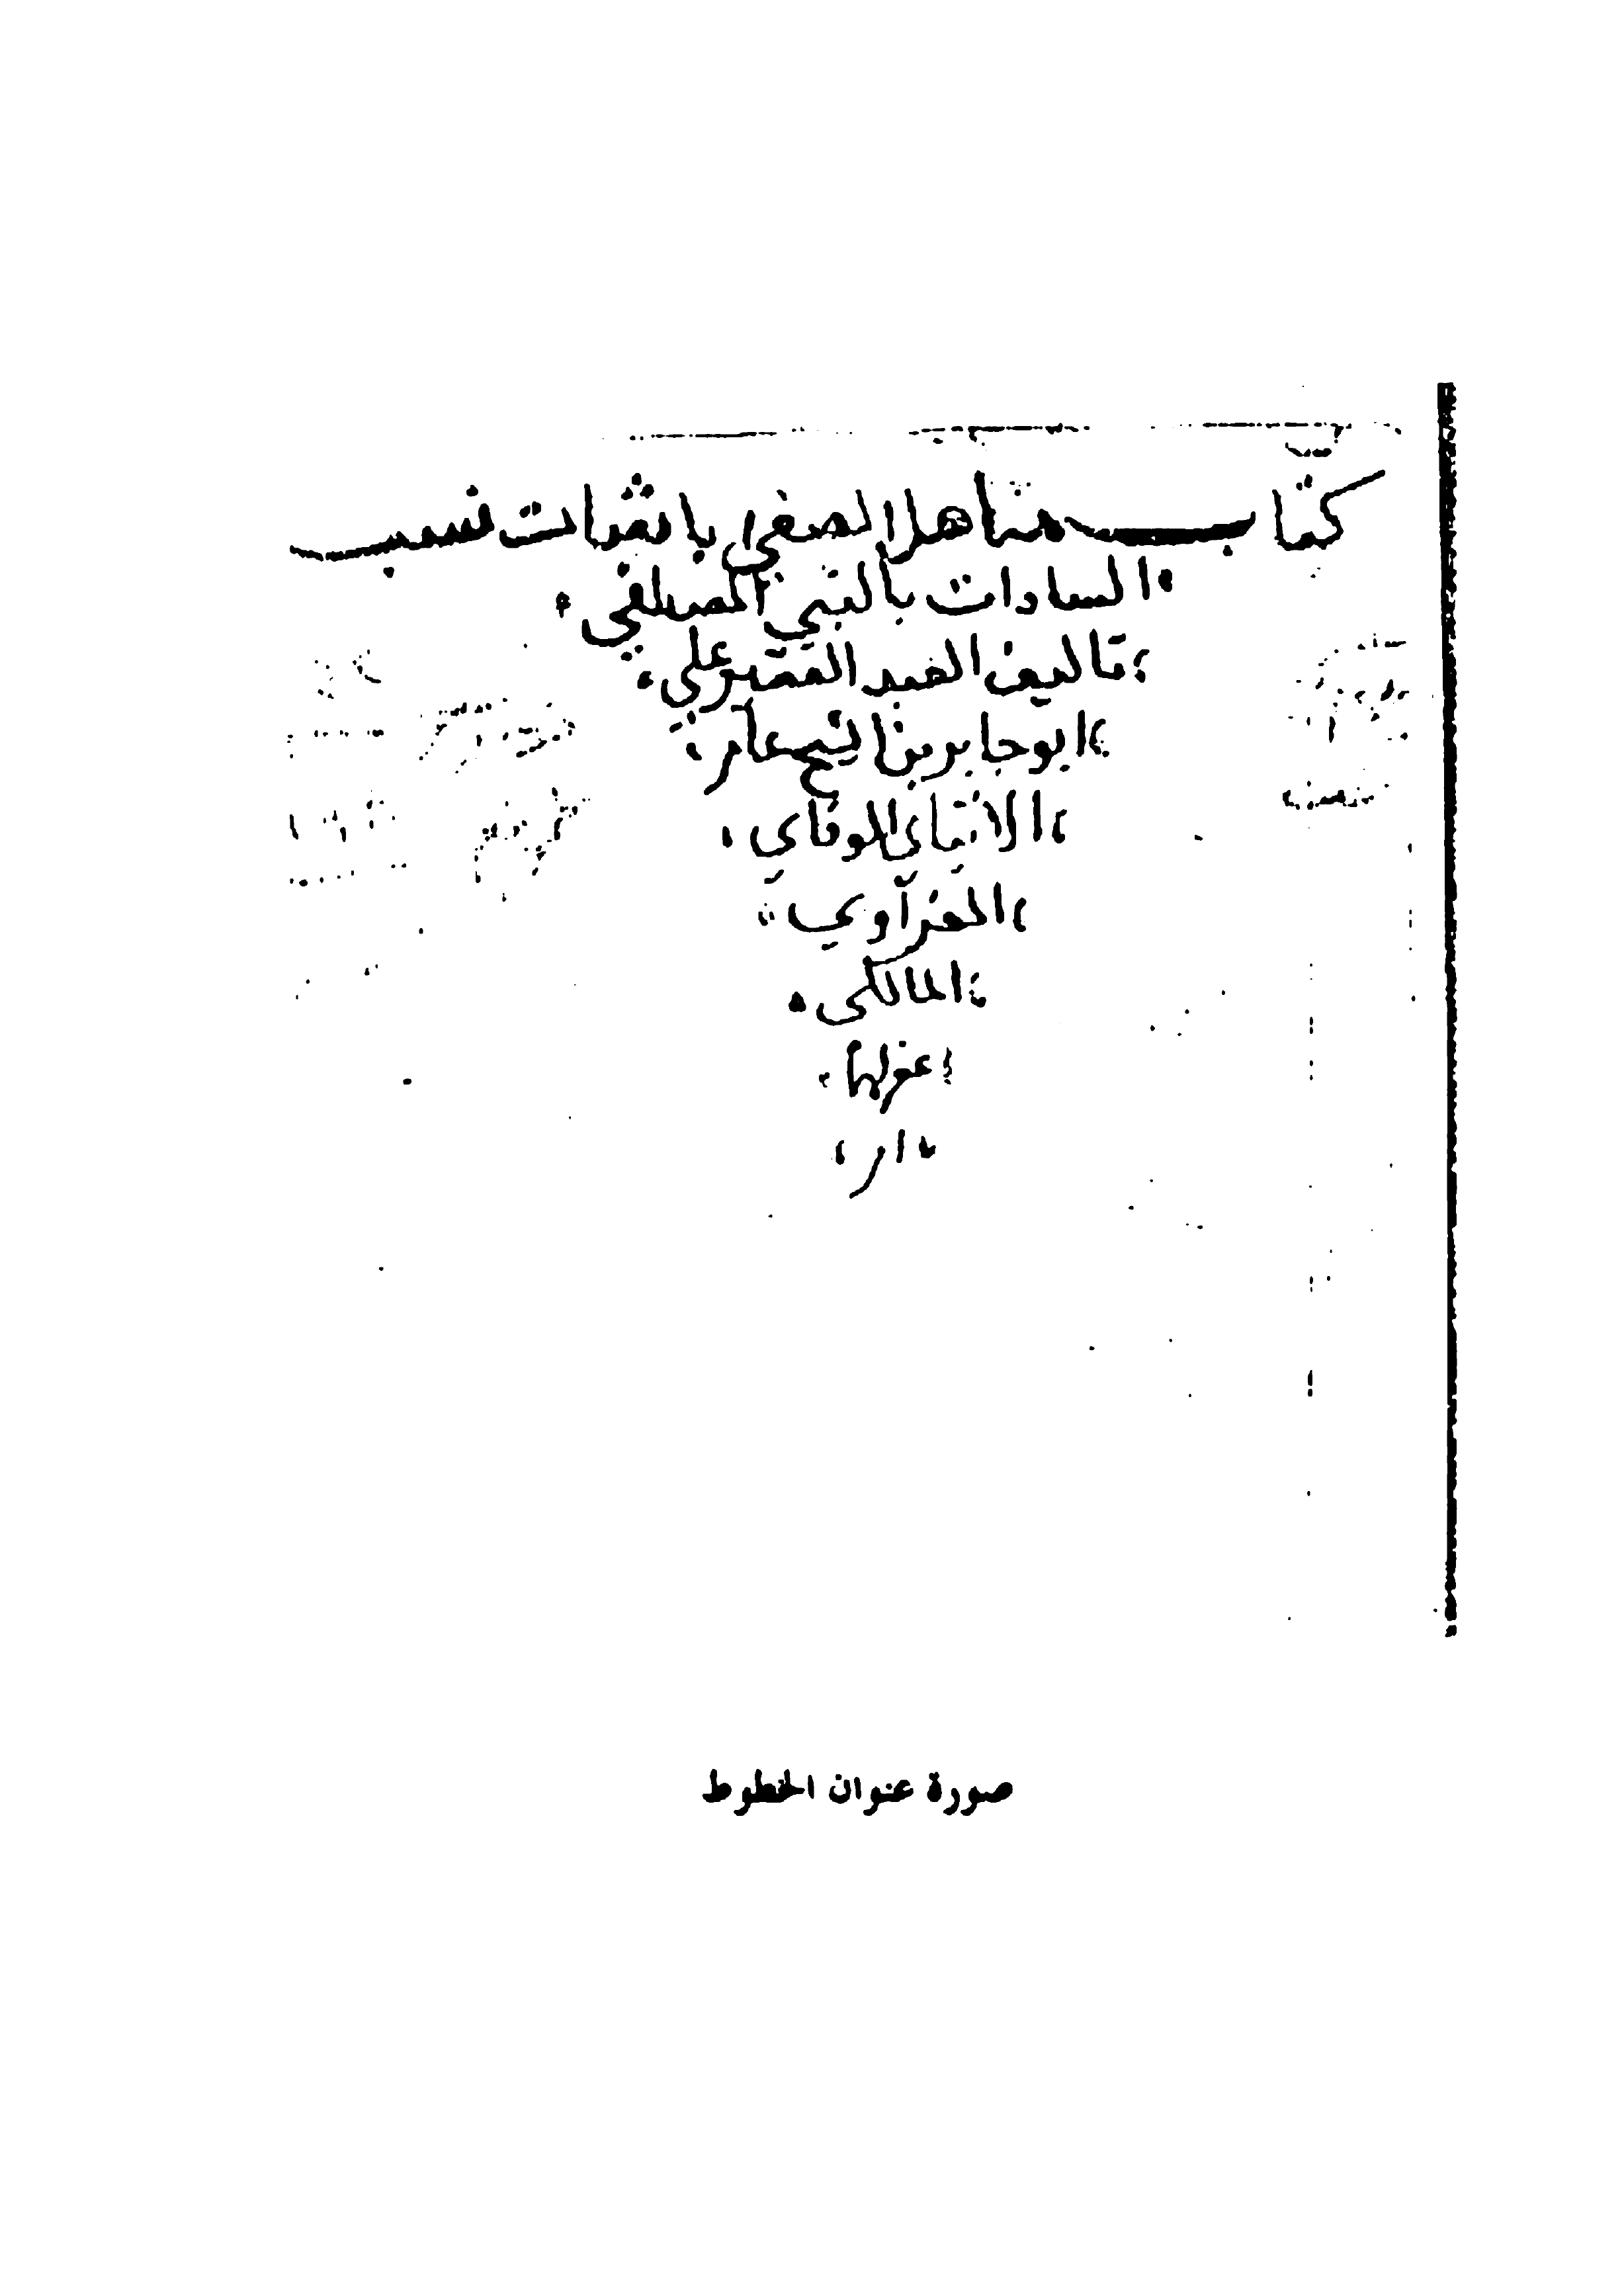 كتاب مناهل الصفى باتصالات نسب
السادات بالنبي المصطفى
تاليف العبد الفقير علي
ابو جابر بن الشيخ عامر
الوفاي
المالكي
غفر لهما
صورة عنوان المخطوط